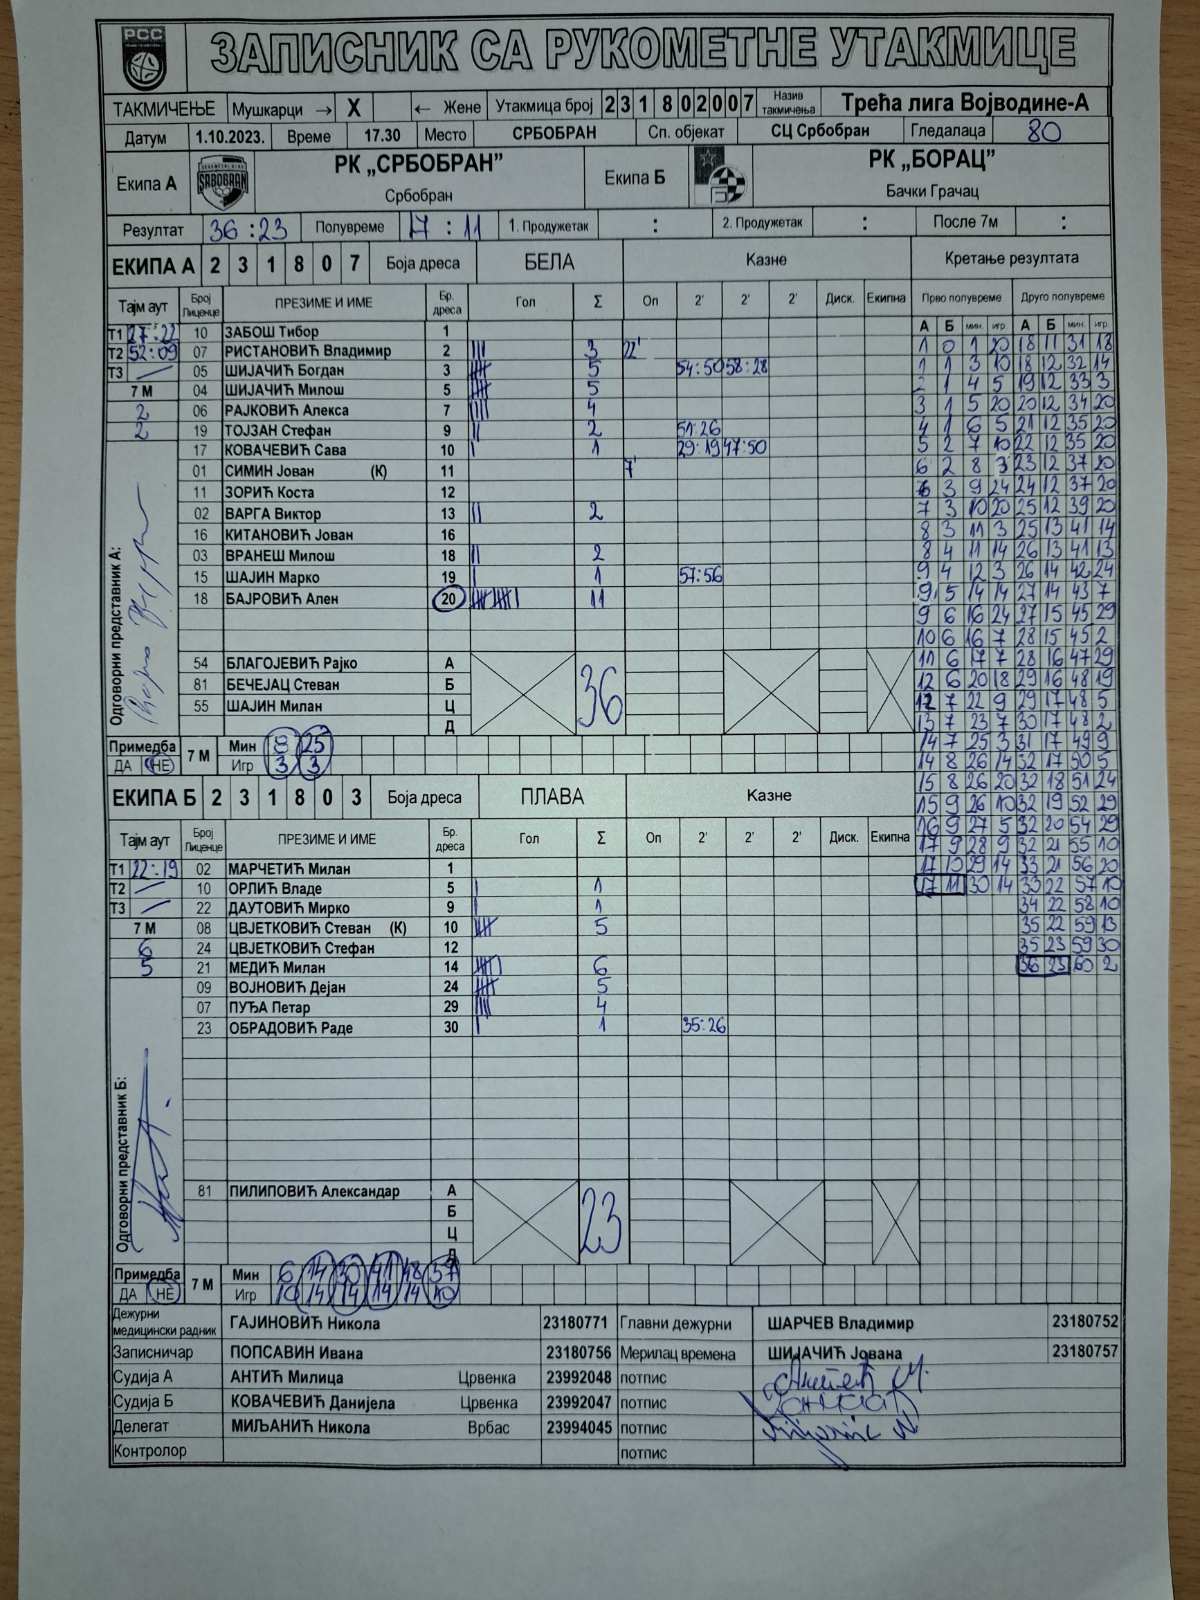 РСС
ЗАПИСНИК СА РУКОМЕТНЕ УТАКМИЦЕ
ТАКМИЧЕЊЕ Мушкарци → X ← Жене Утакмица број 2 3 1 8 0 2 0 0 7 Назив такмичења Трећа лига Војводине-А
Датум 1.10.2023. Време 17.30 Место СРБОБРАН Сп. објекат СЦ Србобран Гледалаца 80
Екипа А SRBOBRAN РК „СРБОБРАН” Србобран Екипа Б РК „БОРАЦ” Бачки Грачац
Резултат 36 : 23 Полувреме 17 : 11 1. Продужетак : 2. Продужетак : После 7м :
ЕКИПА А 2 3 1 8 0 7 Боја дреса БЕЛА Казне Кретање резултата
Тајм аут Број Лиценце ПРЕЗИМЕ И ИМЕ Бр. дреса Гол Σ Оп 2' 2' 2' Диск. Екипна Прво полувреме Друго полувреме
А Б мин. игр. А Б мин. игр.
Т1 27:22 10 ЗАБОШ Тибор 1
Т2 52:09 07 РИСТАНОВИЋ Владимир 2 3 22'
Т3 — 05 ШИЈАЧИЋ Богдан 3 5 54:50 58:28
7 М 04 ШИЈАЧИЋ Милош 5 5
2 06 РАЈКОВИЋ Алекса 7 4
2 19 ТОЈЗАН Стефан 9 2 51:26
17 КОВАЧЕВИЋ Сава 10 1 29:19 47:50
01 СИМИН Јован (К) 11 7'
11 ЗОРИЋ Коста 12
02 ВАРГА Виктор 13 2
16 КИТАНОВИЋ Јован 16
03 ВРАНЕШ Милош 18 2
15 ШАЈИН Марко 19 1 57:56
18 БАЈРОВИЋ Ален 20 11
54 БЛАГОЈЕВИЋ Рајко А
81 БЕЧЕЈАЦ Стеван Б 36
55 ШАЈИН Милан Ц
Д
Одговорни представник А:
Примедба ДА НЕ 7 М Мин 8 25
Игр 3 3
1 0 1 20 18 11 31 18
1 1 3 10 18 12 32 14
2 1 4 5 19 12 33 3
3 1 5 20 20 12 34 20
4 1 6 5 21 12 35 20
5 2 7 10 22 12 35 20
6 2 8 3 23 12 37 20
6 3 9 24 24 12 37 20
7 3 10 20 25 12 39 20
8 3 11 3 25 13 41 14
8 4 11 14 26 13 41 13
9 4 12 3 26 14 42 24
9 5 14 14 27 14 43 7
9 6 16 24 27 15 45 29
10 6 16 7 28 15 45 2
11 6 17 7 28 16 47 29
12 6 20 18 29 16 48 19
12 7 22 9 29 17 48 5
13 7 23 7 30 17 48 2
14 7 25 3 31 17 49 9
14 8 26 14 32 17 50 5
15 8 26 20 32 18 51 24
15 9 26 10 32 19 52 29
16 9 27 5 32 20 54 29
17 9 28 9 32 21 55 10
17 10 29 14 33 21 56 20
17 11 30 14 33 22 57 10
34 22 58 10
35 22 59 13
35 23 59 30
36 23 60 2
ЕКИПА Б 2 3 1 8 0 3 Боја дреса ПЛАВА Казне
Тајм аут Број Лиценце ПРЕЗИМЕ И ИМЕ Бр. дреса Гол Σ Оп 2' 2' 2' Диск. Екипна
Т1 22:19 02 МАРЧЕТИЋ Милан 1
Т2 — 10 ОРЛИЋ Владе 5 1
Т3 — 22 ДАУТОВИЋ Мирко 9 1
7 М 08 ЦВЈЕТКОВИЋ Стеван (К) 10 5
6 24 ЦВЈЕТКОВИЋ Стефан 12
5 21 МЕДИЋ Милан 14 6
09 ВОЈНОВИЋ Дејан 24 5
07 ПУЂА Петар 29 4
23 ОБРАДОВИЋ Раде 30 1 35:26
81 ПИЛИПОВИЋ Александар А
Б 23
Ц
Д
Одговорни представник Б:
Примедба ДА НЕ 7 М Мин 6 14 30 41 48 57
Игр 10 14 14 14 14 10
Дежурни медицински радник ГАЈИНОВИЋ Никола 23180771 Главни дежурни ШАРЧЕВ Владимир 23180752
Записничар ПОПСАВИН Ивана 23180756 Мерилац времена ШИЈАЧИЋ Јована 23180757
Судија А АНТИЋ Милица Црвенка 23992048 потпис
Судија Б КОВАЧЕВИЋ Данијела Црвенка 23992047 потпис
Делегат МИЉАНИЋ Никола Врбас 23994045 потпис
Контролор потпис